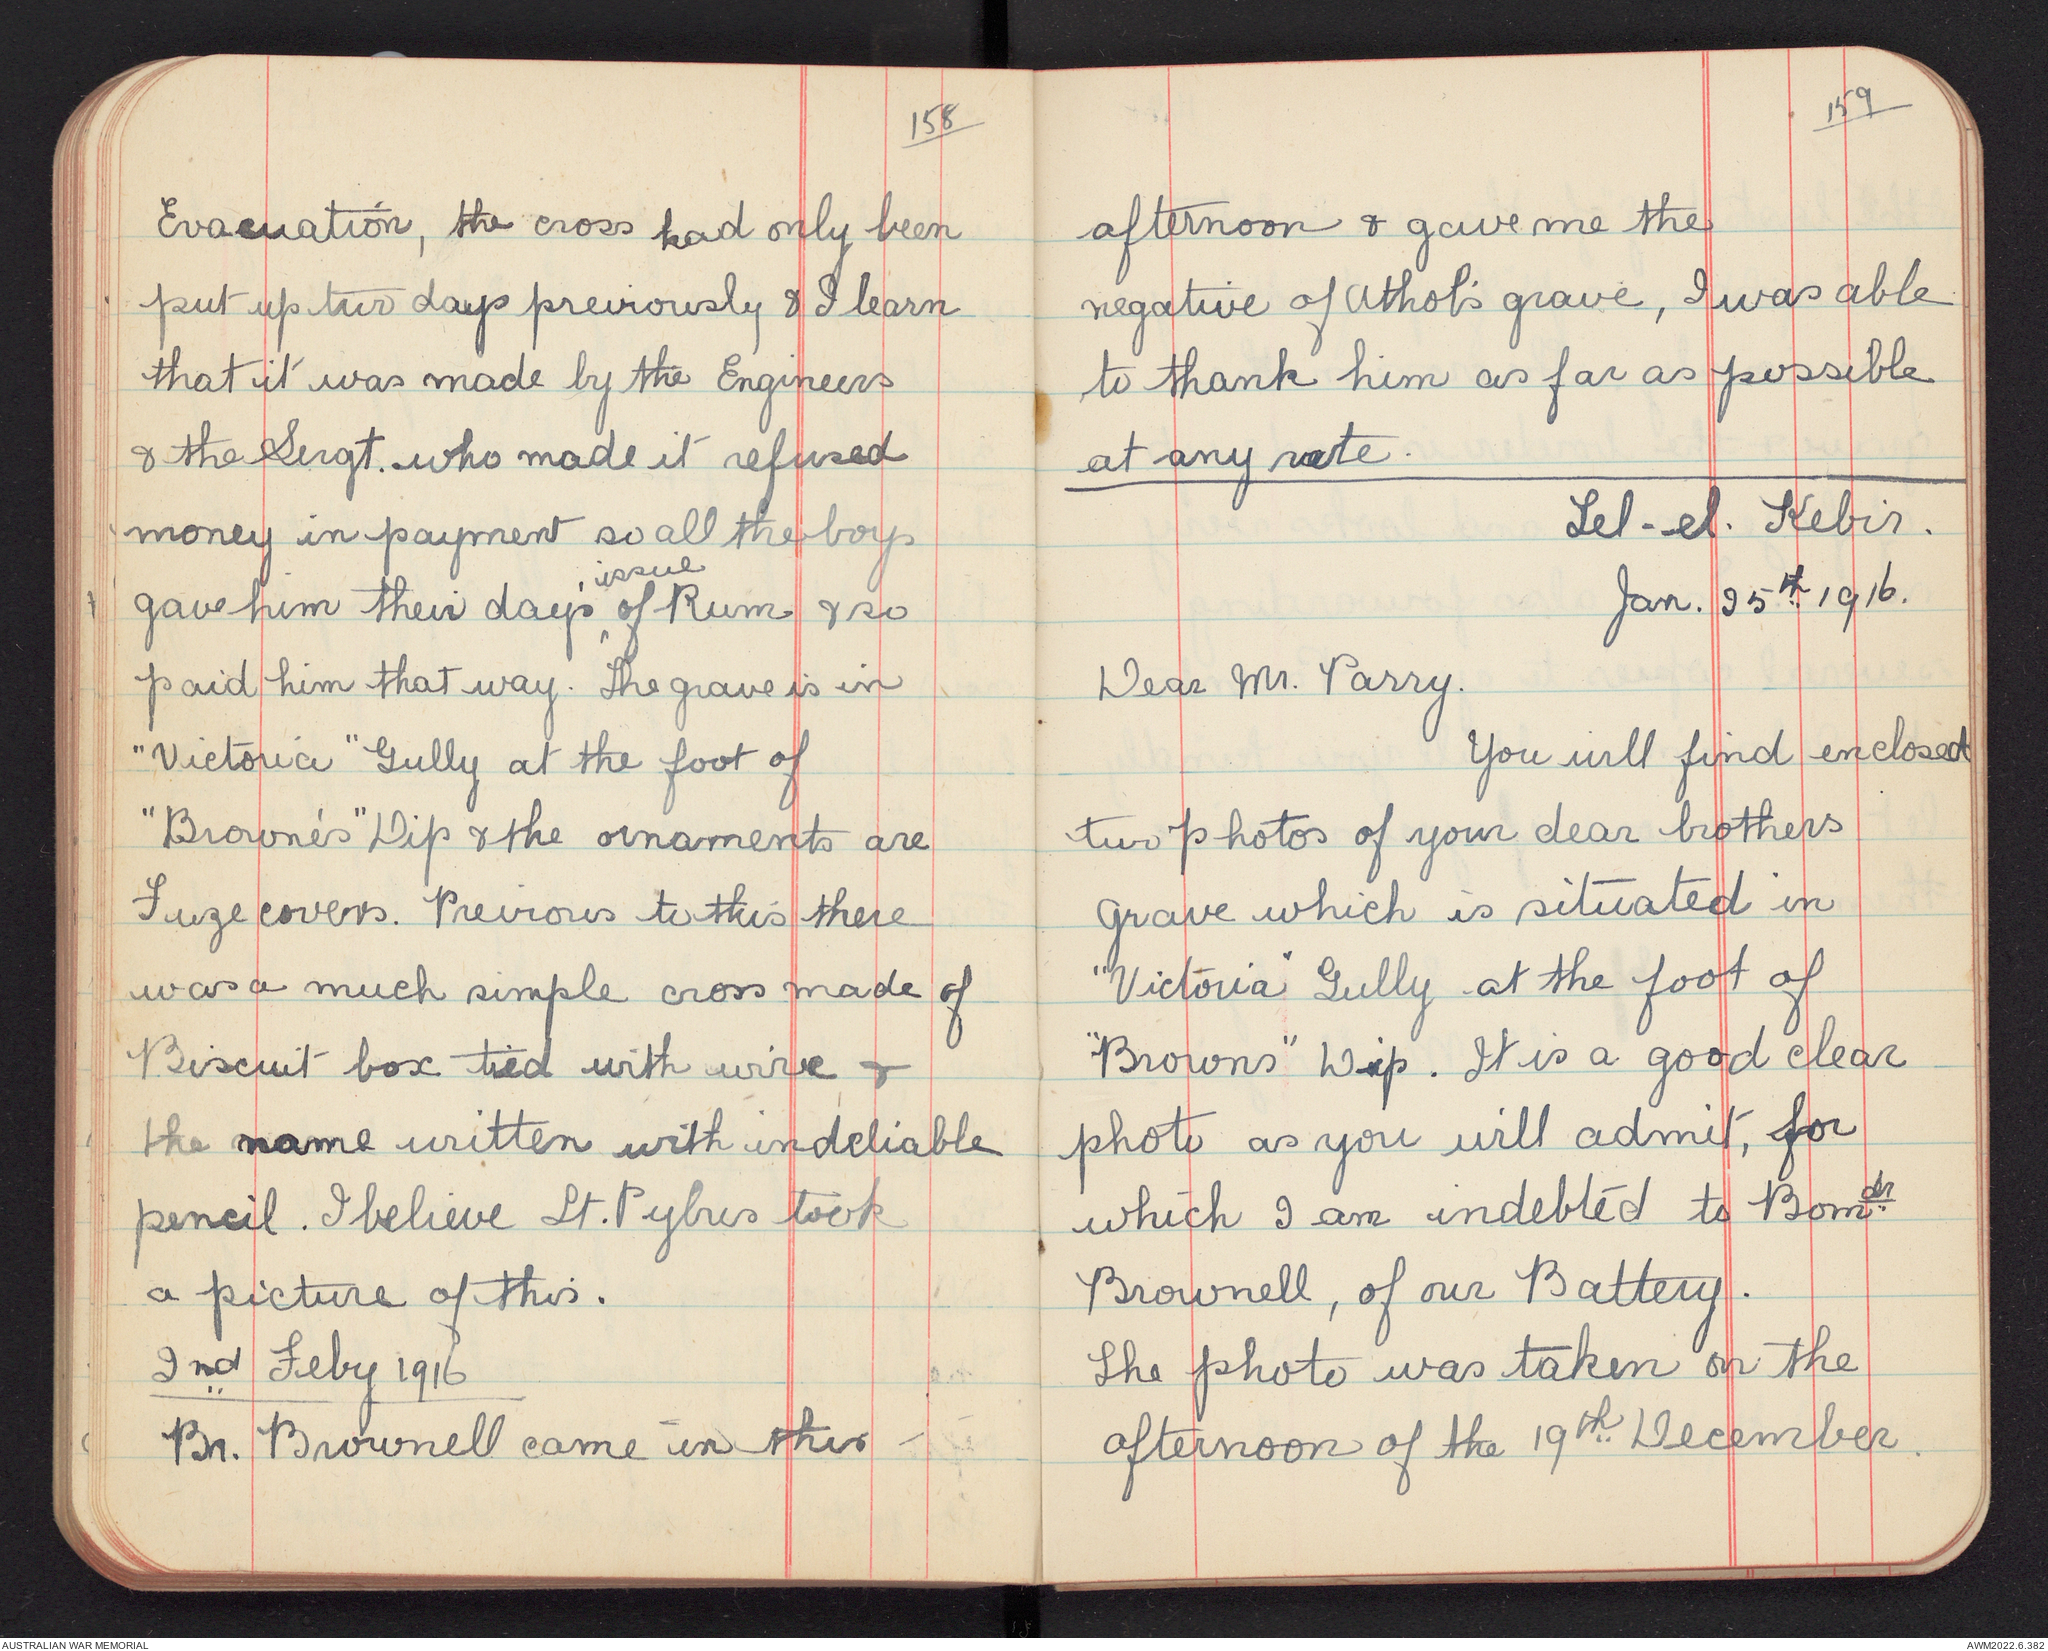 158
Evacuation, the cross had only been
put up two days previously & I learn
that it was made by the Engineers
& the Sergt. who made it refused
money in payment so all the boys
issue
gave him their day's of Rum & so
paid him that way. The grave is in
"Victoria" Gully at the foot of
"Browne's" Dip & the ornaments are
Fuze covers. Previous to this there
was a much simple cross made of
Biscuit box tied with wire &
the name written with indeliable
pencil. I believe Lt. Pybus took
a picture of this.
2nd Feby 1916
Br. Brownell came in this
159
afternoon & gave me the
negative of Athol's grave, I was able
to thank him as far as possible
at any rate.
Tel-el. Kebir.
Jan. 25th 1916.
Dear Mr. Parry.
You will find enclosed
two photos of your dear brothers
grave which is situated in
"Victoria" Gully at the foot of
"Browns" Dip. It is a good clear
photo as you will admit, for
which I am indebted to Bomdr
Brownell, of our Battery.
The photo was taken on the
afternoon of the 19th December.
AUSTRALIAN WAR MEMORIAL
AWM2022.6.382